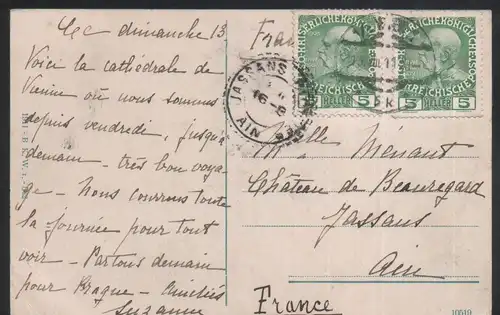 Ce dimanche 13
Voici la cathédrale de
Vienne où nous sommes
depuis vendredi, jusqu'à
demain - très bon voya-
ge - Nous courrons toute
la journée pour tout
voir - Partons demain
pour Prague - Amitiés
Suzanne
France
JASSANS
16 -8
AIN
5 HELLER 5
5 HELLER 5
Mlle Ménant
Château de Beauregard
Jassans
Ain
France
10519